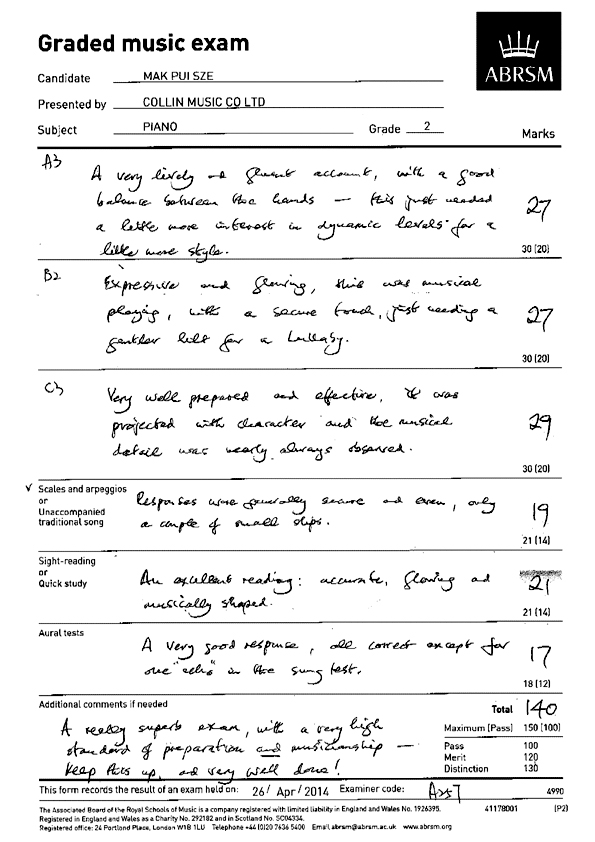 Graded music exam
ABRSM
Candidate MAK PUI SZE
Presented by COLLIN MUSIC CO LTD
Subject PIANO Grade 2
Marks
A3
A very lively and fluent account, with a good
balance between the hands — this just needed
a little more interest in dynamic levels for a
little more style.
27
30 (20)
B2
Expressive and flowing, this was musical
playing, with a secure touch, just needing a
gentler lilt for a Lullaby.
27
30 (20)
C3
Very well prepared and effective, it was
projected with character and the musical
detail was nearly always observed.
29
30 (20)
✓ Scales and arpeggios
or
Unaccompanied
traditional song
Responses were generally secure and even, only
a couple of small slips.
19
21 (14)
Sight-reading
or
Quick study
An excellent reading: accurate, flowing and
musically shaped.
21
21 (14)
Aural tests
A very good response, all correct except for
one "echo" in the sung test.
17
18 (12)
Additional comments if needed
A really superb exam, with a very high
standard of preparation and musicianship —
keep this up, and very well done!
Total 140
Maximum (Pass) 150 (100)
Pass 100
Merit 120
Distinction 130
This form records the result of an exam held on: 26/ Apr / 2014 Examiner code: A257 4990
The Associated Board of the Royal Schools of Music is a company registered with limited liability in England and Wales No. 1926395. 41178001 (P2)
Registered in England and Wales as a Charity No. 292182 and in Scotland No. SC04334.
Registered office: 24 Portland Place, London W1B 1LU Telephone +44 (0)20 7636 5400 Email abrsm@abrsm.ac.uk www.abrsm.org